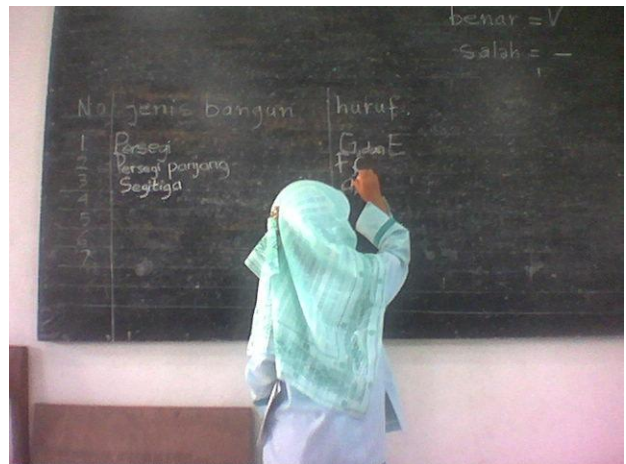 benar = V
salah = -
No jenis bangun huruf.
1 Persegi G dan E
2 Persegi panjang F, C
3 Segitiga
4
5
6
7